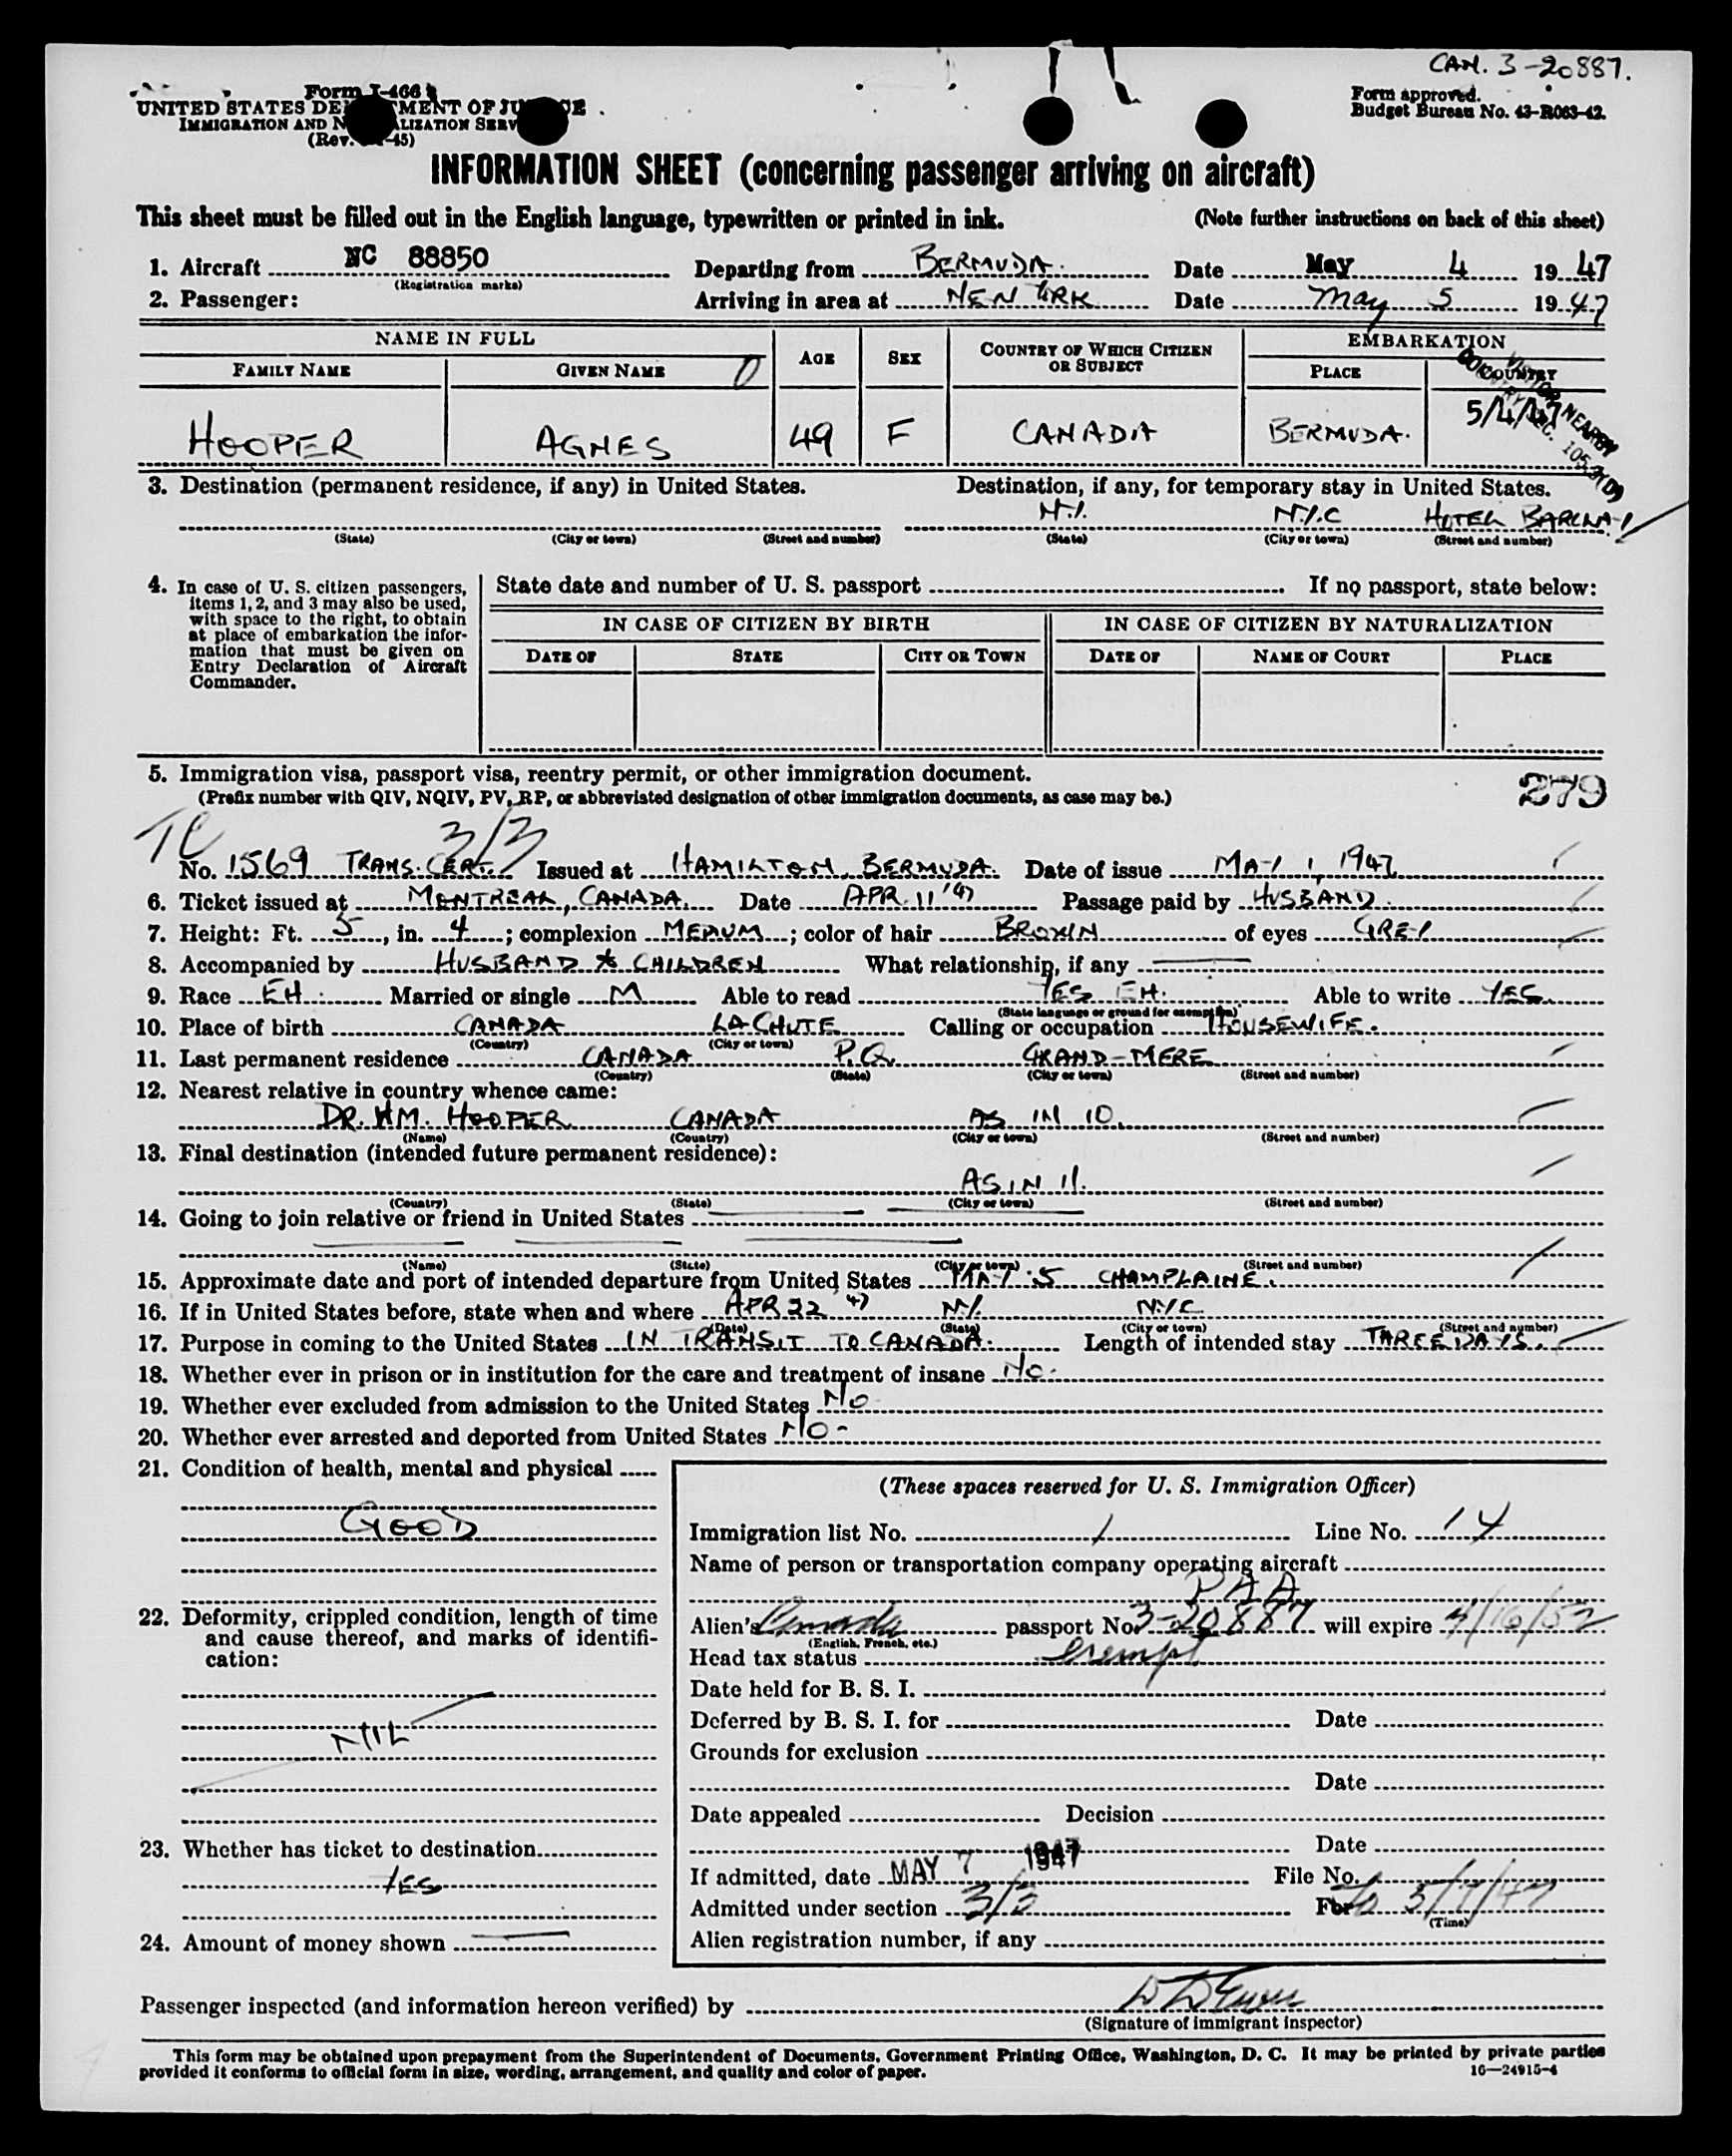 CAN. 3-20887.
Form I-466
UNITED STATES DE MENT OF JU CE
IMMIGRATION AND N ALIZATION SERV
(Rev. -45)
Form approved.
Budget Bureau No. 43-R063-42.
INFORMATION SHEET (concerning passenger arriving on aircraft)
This sheet must be filled out in the English language, typewritten or printed in ink. (Note further instructions on back of this sheet)
1. Aircraft NC 88850 Departing from BERMUDA. Date May 4 1947
(Registration marks)
2. Passenger: Arriving in area at NEW YORK Date May 5 1947
NAME IN FULL AGE SEX COUNTRY OF WHICH CITIZEN OR SUBJECT EMBARKATION
FAMILY NAME GIVEN NAME PLACE COUNTRY
HOOPER AGNES 49 F CANADA BERMUDA. 5/4/47
VISITOR NEARBY
3. Destination (permanent residence, if any) in United States. Destination, if any, for temporary stay in United States.
N.Y. N.Y.C HOTEL BARCLAY
(State) (City or town) (Street and number) (State) (City or town) (Street and number)
4. In case of U. S. citizen passengers, items 1, 2, and 3 may also be used, with space to the right, to obtain at place of embarkation the information that must be given on Entry Declaration of Aircraft Commander.
State date and number of U. S. passport If no passport, state below:
IN CASE OF CITIZEN BY BIRTH IN CASE OF CITIZEN BY NATURALIZATION
DATE OF STATE CITY OR TOWN DATE OF NAME OF COURT PLACE
5. Immigration visa, passport visa, reentry permit, or other immigration document.
(Prefix number with QIV, NQIV, PV, RP, or abbreviated designation of other immigration documents, as case may be.)
279
TC 3/3
No. 1569 TRANS. CERT. Issued at HAMILTON, BERMUDA. Date of issue MAY 1, 1947
6. Ticket issued at MONTREAL, CANADA. Date APR. 11 '47 Passage paid by HUSBAND.
7. Height: Ft. 5, in. 4; complexion MEDIUM; color of hair BROWN of eyes GREY
8. Accompanied by HUSBAND & CHILDREN What relationship, if any
9. Race EH. Married or single M Able to read YES EH. Able to write YES.
(State language or ground for exemption)
10. Place of birth CANADA LACHUTE Calling or occupation HOUSEWIFE.
(Country) (City or town)
11. Last permanent residence CANADA P.Q. GRAND-MERE
(Country) (State) (City or town) (Street and number)
12. Nearest relative in country whence came:
DR. WM. HOOPER CANADA AS IN 10.
(Name) (Country) (City or town) (Street and number)
13. Final destination (intended future permanent residence):
AS IN 11.
(Country) (State) (City or town) (Street and number)
14. Going to join relative or friend in United States
(Name) (State) (City or town) (Street and number)
15. Approximate date and port of intended departure from United States MAY 5 CHAMPLAINE.
16. If in United States before, state when and where APR 22 '47 N.Y. N.Y.C
(Date) (State) (City or town) (Street and number)
17. Purpose in coming to the United States IN TRANSIT TO CANADA. Length of intended stay THREE DAYS.
18. Whether ever in prison or in institution for the care and treatment of insane NO.
19. Whether ever excluded from admission to the United States NO
20. Whether ever arrested and deported from United States NO-
21. Condition of health, mental and physical
GOOD
22. Deformity, crippled condition, length of time and cause thereof, and marks of identification:
NIL
23. Whether has ticket to destination
YES
24. Amount of money shown
(These spaces reserved for U. S. Immigration Officer)
Immigration list No. 1 Line No. 14
Name of person or transportation company operating aircraft
PAA
Alien's Canada passport No. 3-20887 will expire 4/16/52
(English, French, etc.)
Head tax status exempt
Date held for B. S. I.
Deferred by B. S. I. for Date
Grounds for exclusion
Date
Date appealed Decision
Date
If admitted, date MAY 7 1947 File No.
Admitted under section 3/3 For 5/7/47
(Time)
Alien registration number, if any
Passenger inspected (and information hereon verified) by
(Signature of immigrant inspector)
This form may be obtained upon prepayment from the Superintendent of Documents, Government Printing Office, Washington, D. C. It may be printed by private parties
provided it conforms to official form in size, wording, arrangement, and quality and color of paper. 16—24915-4